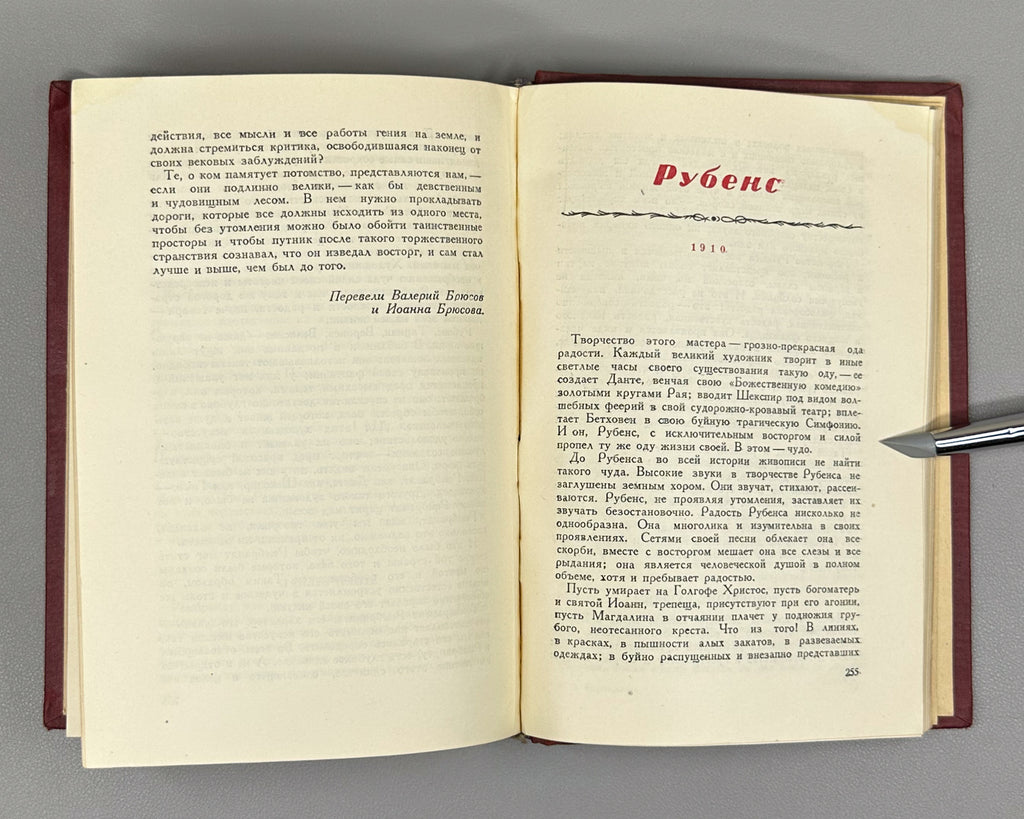 действия, все мысли и все работы гения на земле, и
должна стремиться критика, освободившаяся наконец от
своих вековых заблуждений?
Те, о ком памятует потомство, представляются нам,—
если они подлинно велики,— как бы девственным
и чудовищным лесом. В нем нужно прокладывать
дороги, которые все должны исходить из одного места,
чтобы без утомления можно было обойти таинственные
просторы и чтобы путник после такого торжественного
странствия сознавал, что он изведал восторг, и сам стал
лучше и выше, чем был до того.
Перевели Валерий Брюсов
и Иоанна Брюсова.
Рубенс
1910
Творчество этого мастера — грозно-прекрасная ода
радости. Каждый великий художник творит в иные
светлые часы своего существования такую оду,— ее
создает Данте, венчая свою «Божественную комедию»
золотыми кругами Рая; вводит Шекспир под видом вол-
шебных феерий в свой судорожно-кровавый театр; впле-
тает Бетховен в свою буйную трагическую Симфонию.
И он, Рубенс, с исключительным восторгом и силой
пропел ту же оду жизни своей. В этом — чудо.
До Рубенса во всей истории живописи не найти
такого чуда. Высокие звуки в творчестве Рубенса не
заглушены земным хором. Они звучат, стихают, рассеи-
ваются. Рубенс, не проявляя утомления, заставляет их
звучать безостановочно. Радость Рубенса нисколько не
однообразна. Она многолика и изумительна в своих
проявлениях. Сетями своей песни облекает она все
скорби, вместе с восторгом мешает она все слезы и все
рыдания; она является человеческой душой в полном
объеме, хотя и пребывает радостью.
Пусть умирает на Голгофе Христос, пусть богоматерь
и святой Иоанн, трепеща, присутствуют при его агонии,
пусть Магдалина в отчаянии плачет у подножия гру-
бого, неотесанного креста. Что из того! В линиях,
в красках, в пышности алых закатов, в развеваемых
одеждах; в буйно распущенных и внезапно представших
255